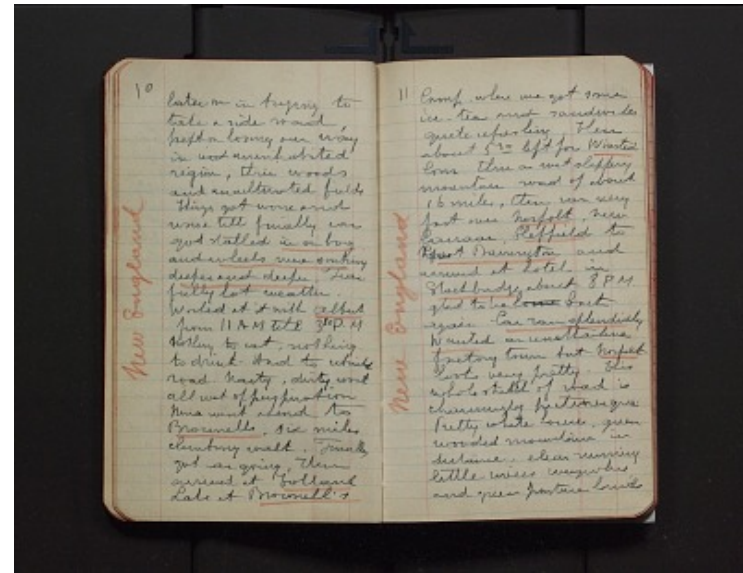 10
New England
later on in trying to
take a side road
kept on losing our way
in wod uninhabited
region, thru woods
and uncultivated fields
Things got worse and
worse till finally car
got stalled in a bog
and wheels were sinking
deeper and deeper.
fully hot weather.
Worked at it with Albert
from 11 A.M till 3 P.M
Nothing to eat, nothing
to drink. Had to rebuild
road. Nasty, dirty work
all wet of perspiration
Nina went ahead to
Brownells, six miles
climbing walk. Finally
got car going, Then
arrived at Tolland
Lake at Brownell's
11
New England
Camp where we got some
ice-tea and sandwiches
quite refreshing. Then
about 5 30 left for Winsted
Conn thru a wet slippery
mountain road of about
16 miles, then ran very
fast over Norfolk, New
Canaan, Sheffield to
Great Barrington and
arrived at hotel in
Stockbridge about 8 P.M.
glad to be back
again. Car ran splendidly
Winsted an unattractive
factory town but Norfolk
looks very pretty. This
whole stretch of road is
charmingly picturesque
Pretty white houses, green
wooded mountains in
distance, clear running
little rivers everywhere
and green pasture lands